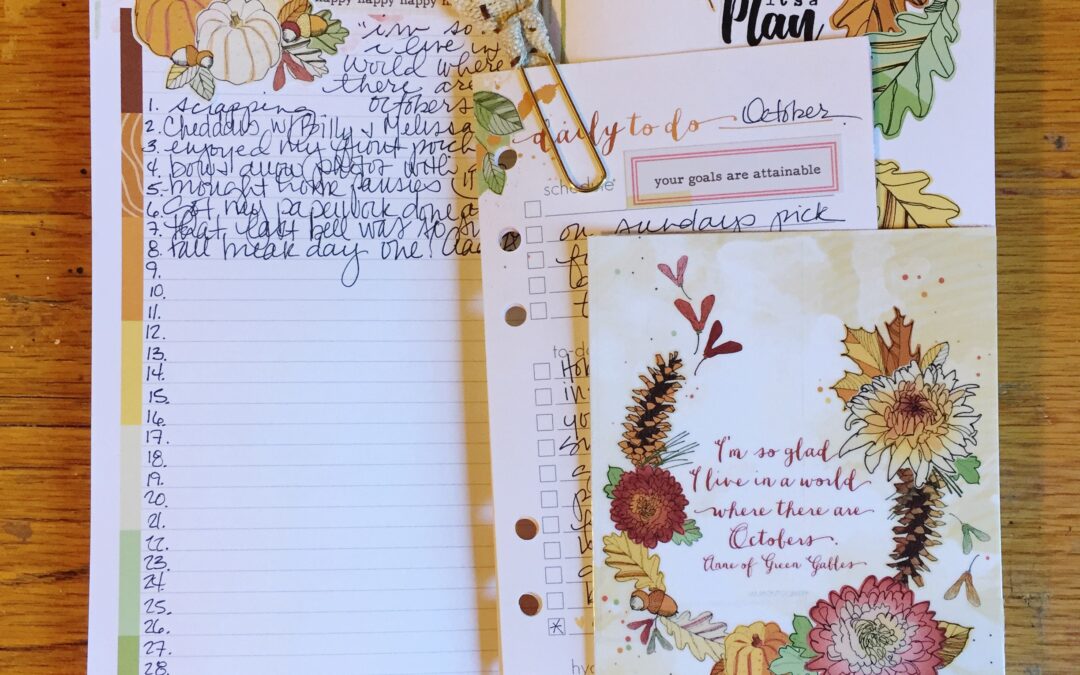 happy happy happy h
it's a
Plan
"i'm so
i live in
world where
there are
octobers
1. scrapping
2. Cheddars w/ Billy & Melissa
3. enjoyed my front porch
4.
5. brought home pansies
6. Got my paperwork done
7. that last bell was so
8. fall break day one!
9.
10.
11.
12.
13.
14.
15.
16.
17.
18.
19.
20.
21.
22.
23.
24.
25.
26.
27.
28.
daily to do October
your goals are attainable
schedule
on sundays pick
to-do
in
yo
hy
I'm so glad
I live in a world
where there are
Octobers.
Anne of Green Gables